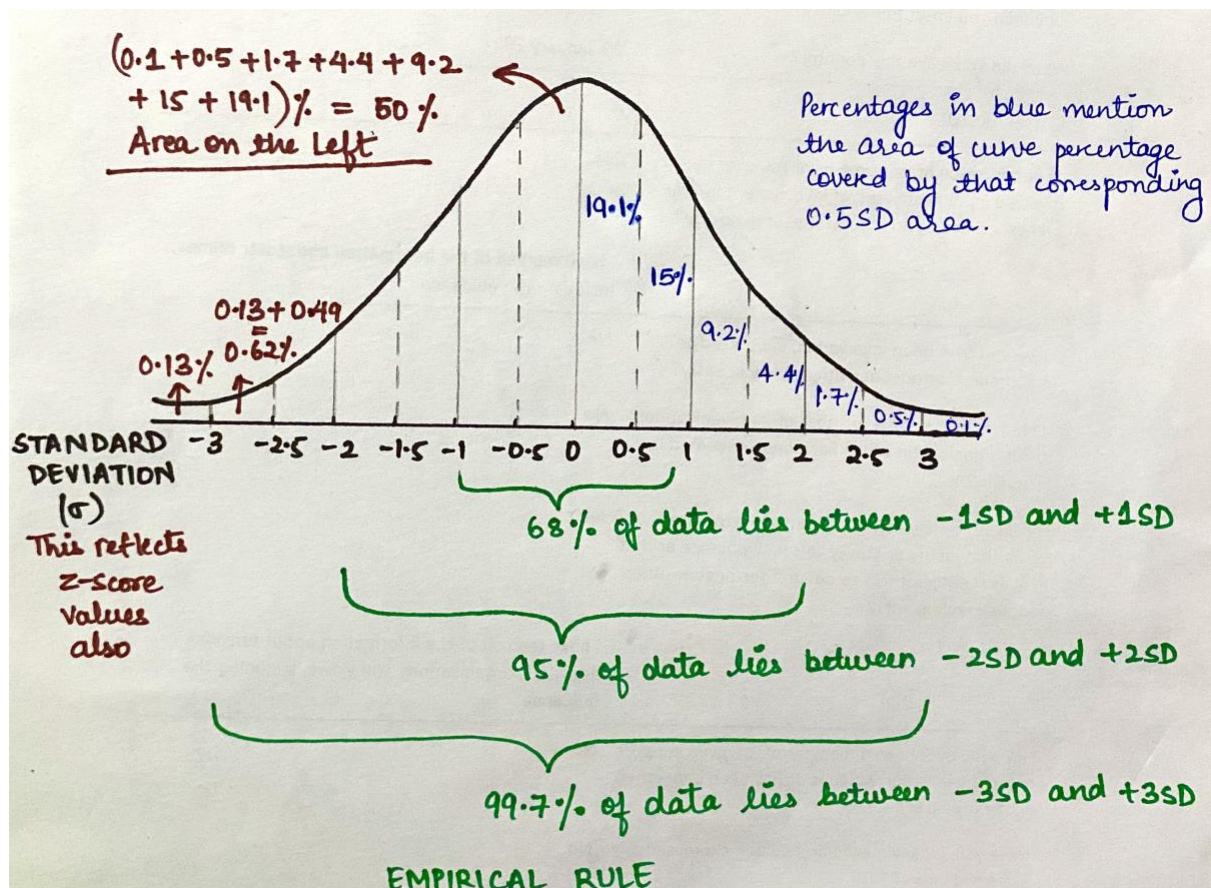 (0.1+0.5+1.7+4.4+9.2
+ 15 + 19.1)% = 50%
Area on the Left
Percentages in blue mention
the area of curve percentage
covered by that corresponding
0.5SD area.
19.1%
15%
0.13+0.49
=
0.62%
0.13%
9.2%
4.4%
1.7%
0.5%
0.1%
STANDARD
DEVIATION
(σ)
-3 -2.5 -2 -1.5 -1 -0.5 0 0.5 1 1.5 2 2.5 3
This reflects
z-score
values
also
68% of data lies between -1SD and +1SD
95% of data lies between -2SD and +2SD
99.7% of data lies between -3SD and +3SD
EMPIRICAL RULE